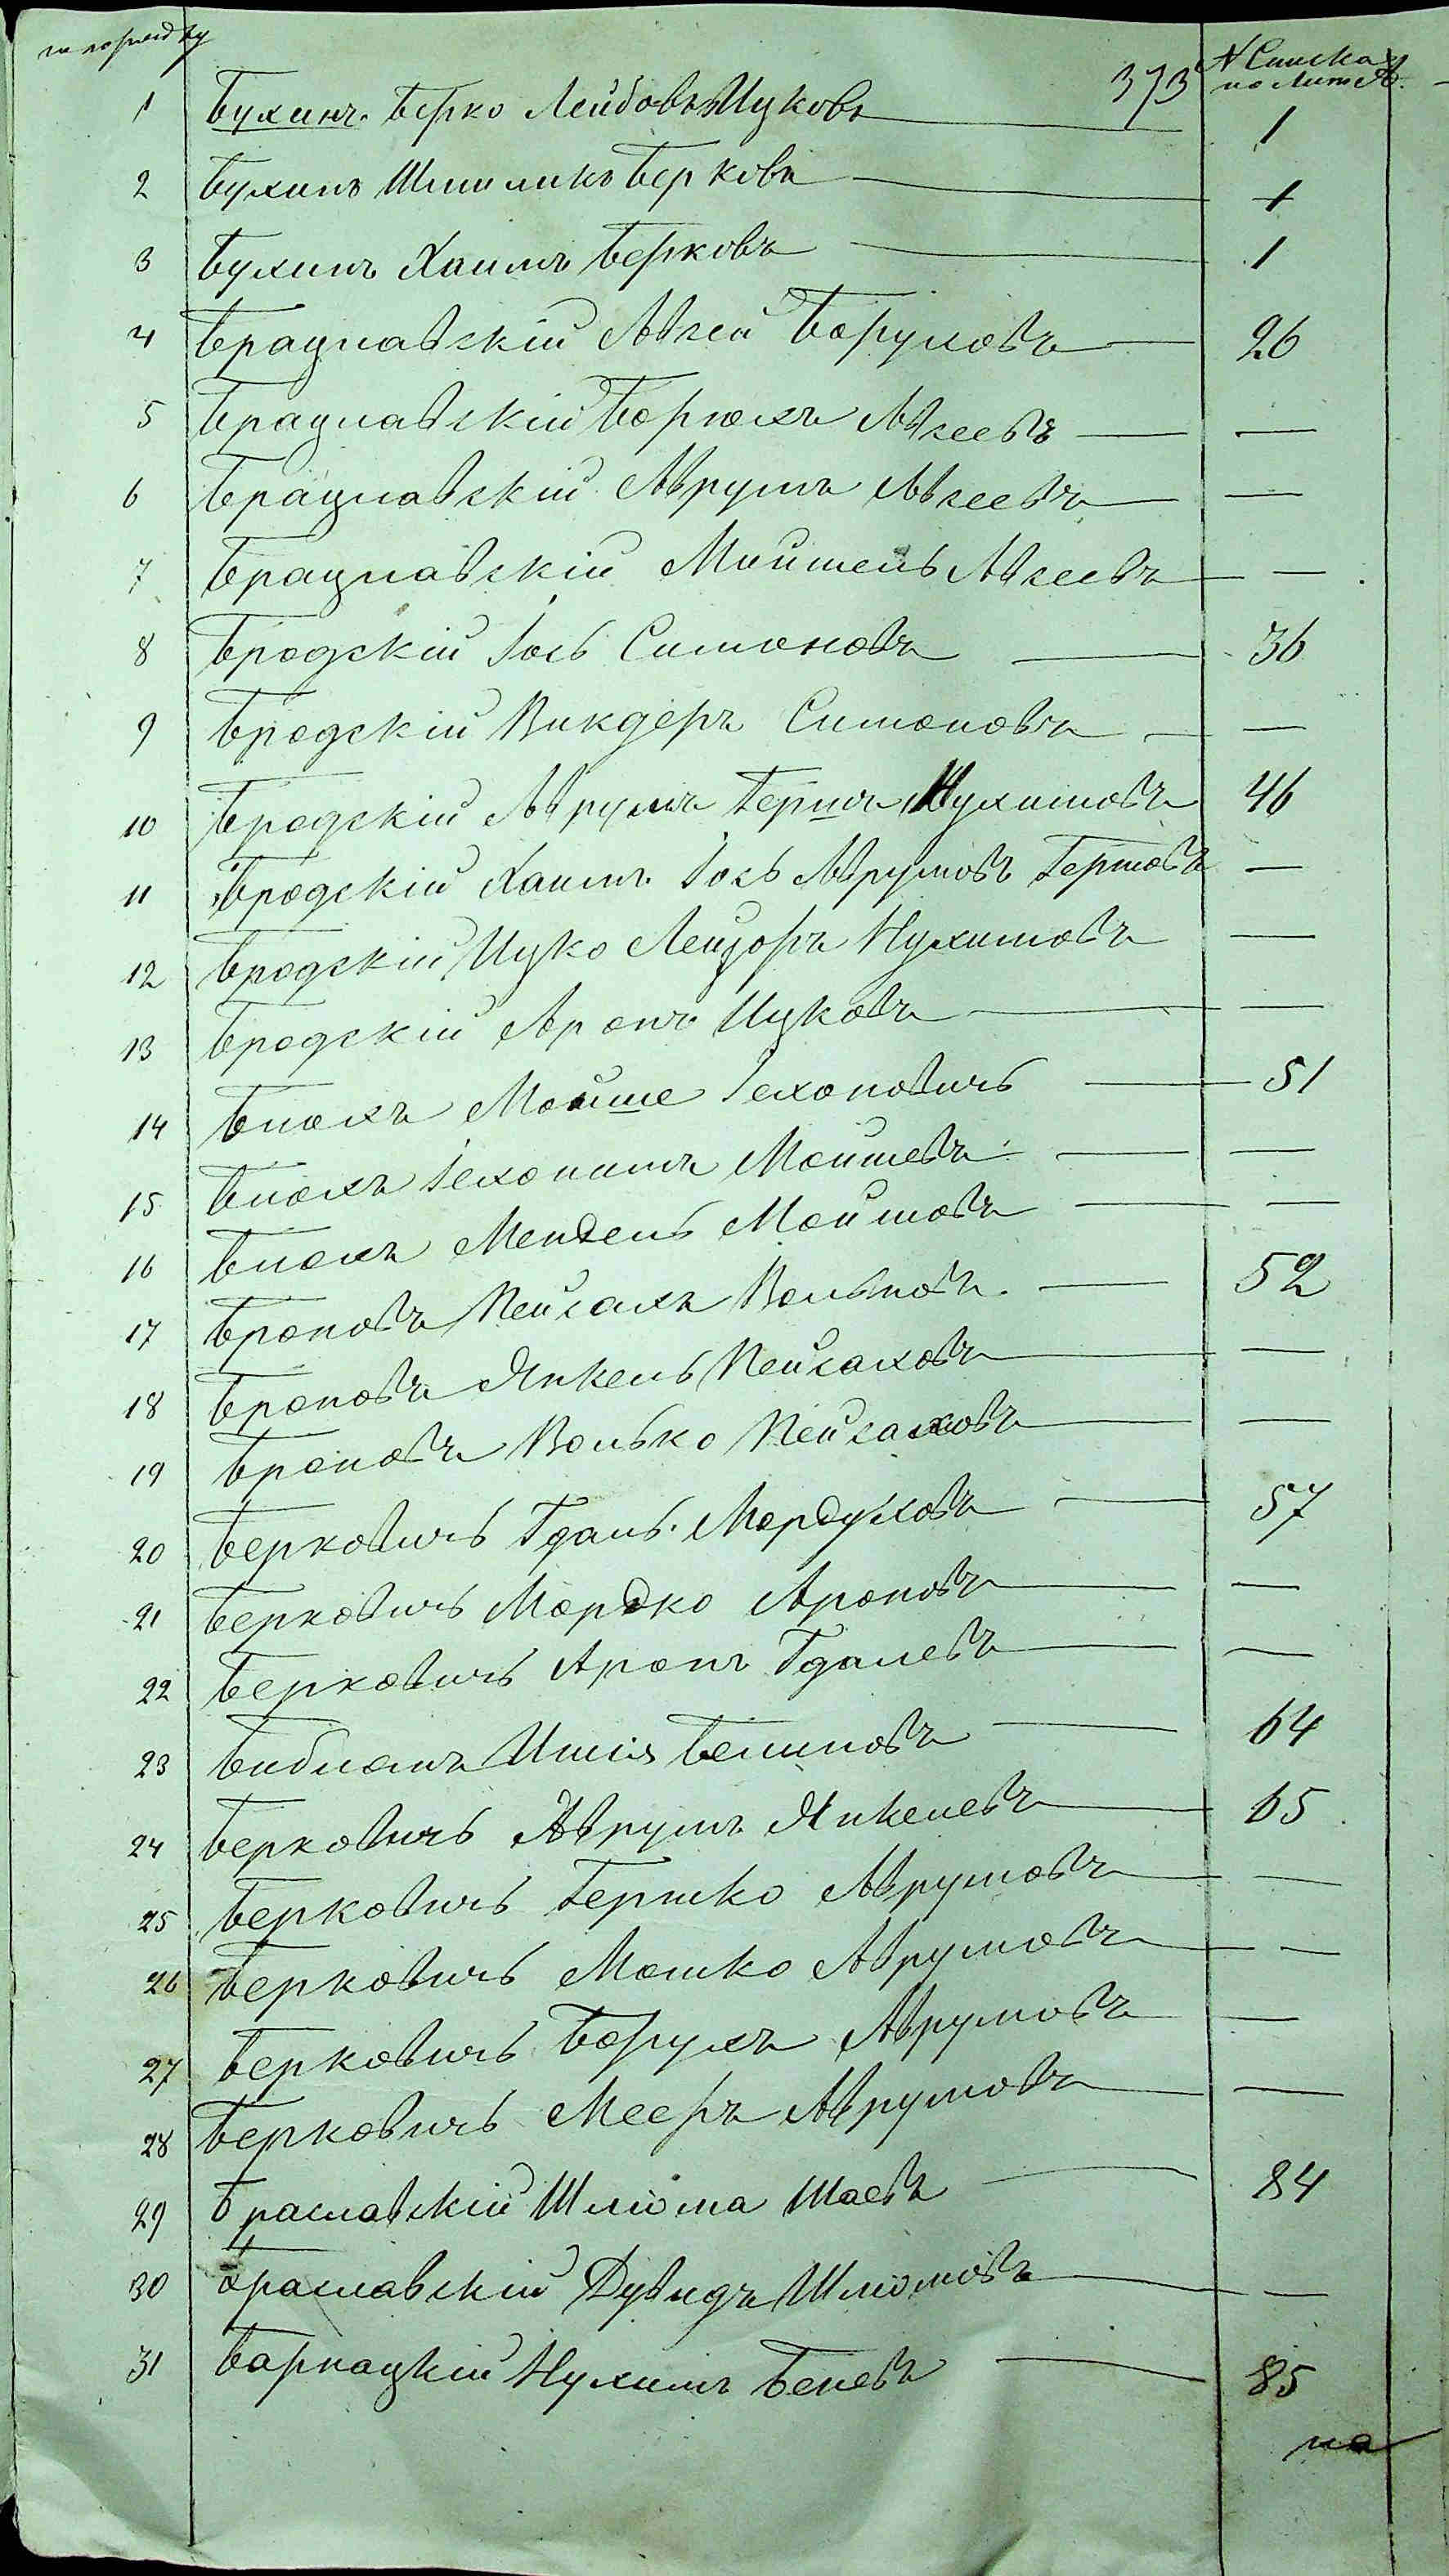 по порядку
373
№ Списка
по Лит Б.
1 Бухинъ Берко Лейбовъ Ицковъ — 1
2 Бухинъ Шмиликъ Берковъ — 1
3 Бухинъ Хаимъ Берковъ — 1
4 Брацлавскій Авсей Боруховъ — 26
5 Брацлавскій Борюхъ Авсеевъ — —
6 Брацлавскій Аврумъ Авсеевъ — —
7 Брацлавскій Авсеевъ — —
8 Бродскій Іось Симоновъ — 36
9 Бродскій Викдеръ Симоновъ — —
10 Бродскій Аврумъ Гершъ Нухимовъ 46
11 Бродскій Хаимъ Іось Аврумовъ Гершовъ —
12 Бродскій Ицко Лейзоръ Нухимовъ —
13 Бродскій Аронъ Ицковъ — —
14 Блохъ Мойше Іехоновичъ — 51
15 Блохъ Мойшевъ — —
16 Блохъ Мендель Мойшовъ — —
17 Броновъ Пейсахъ Вольковъ — 52
18 Броновъ Янкель Пейсаховъ — —
19 Броновъ Волько Пейсаховъ — —
20 Берковичъ Гдаль Мордуховъ — 57
21 Берковичъ Мордко Ароновъ — —
22 Берковичъ Аронъ Гдалевъ — —
23 Ишія — 64
24 Берковичъ Аврумъ Янкелевъ — 65
25 Берковичъ Гершко Аврумовъ — —
26 Берковичъ Мошко Аврумовъ — —
27 Берковичъ Борухъ Аврумовъ — —
28 Берковичъ Мееръ Аврумовъ — —
29 Браславскій Шлiома Шаевъ — 84
30 Браславскій Дувидъ Шлiомовъ — —
31 Барнацкій Нухимъ Беневъ — 85
на